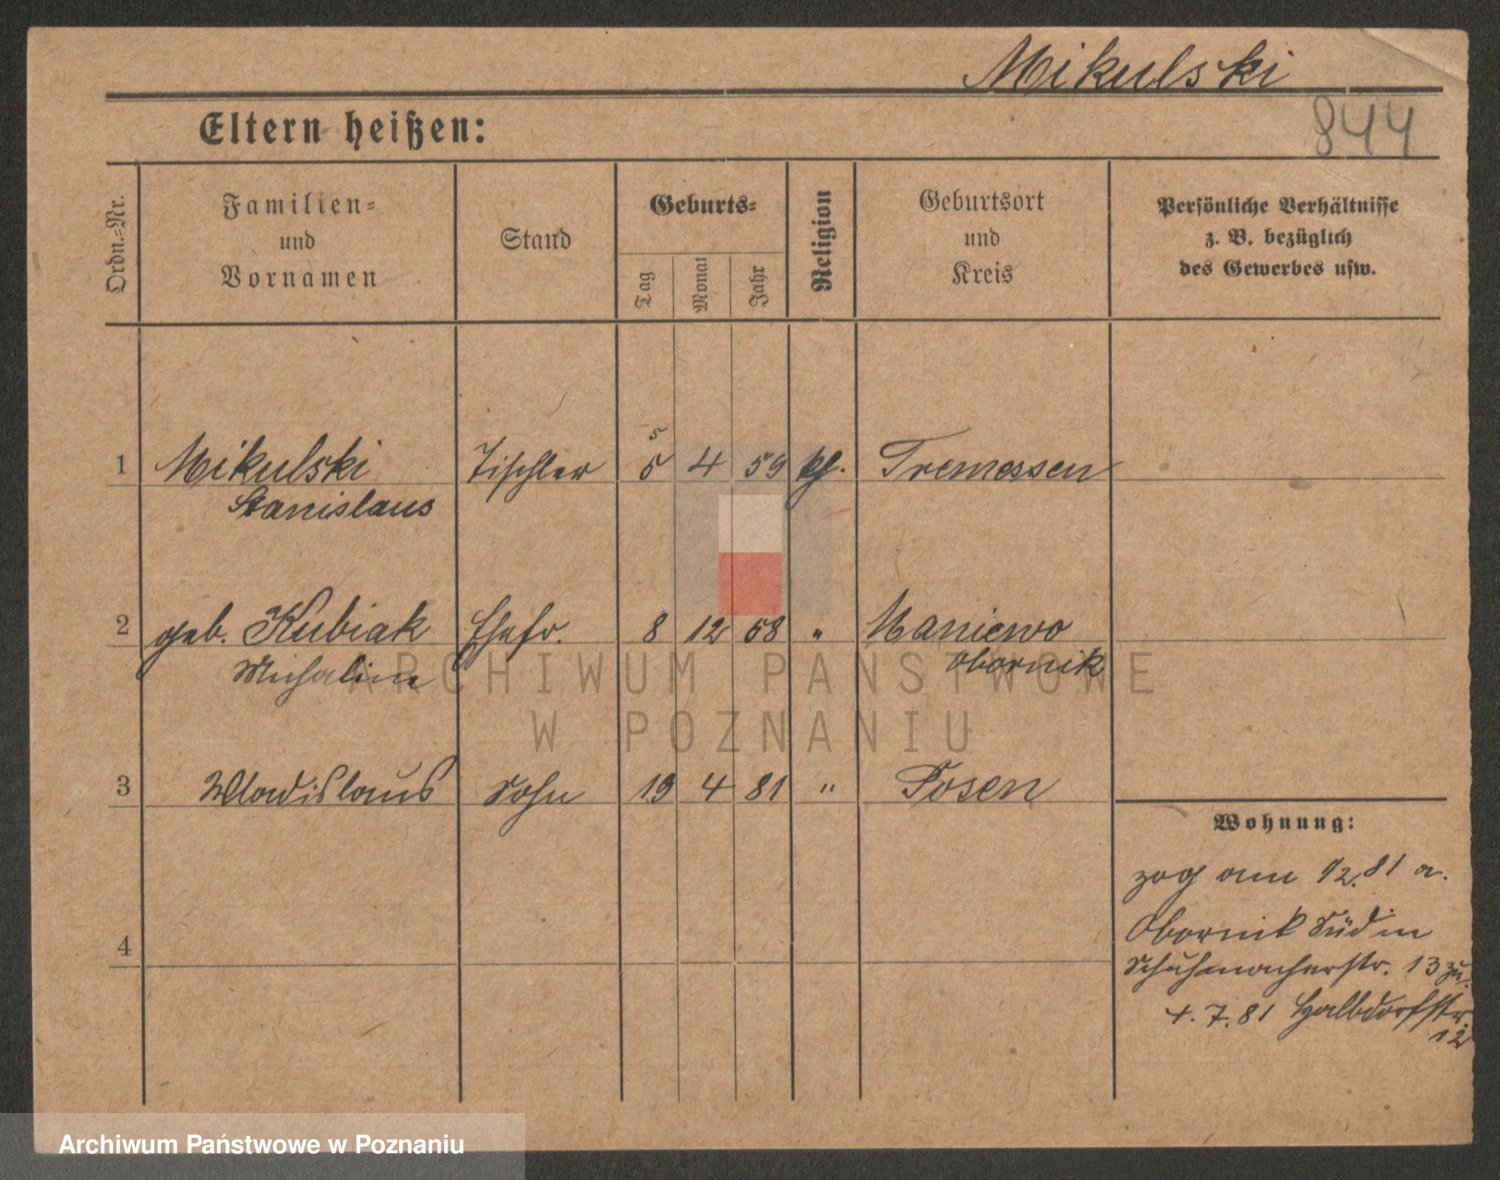 Mikulski
844
Eltern heißen:
Ordn.-Nr.
Familien-
und
Vornamen
Stand
Geburts-
Tag
Monat
Jahr
Religion
Geburtsort
und
Kreis
Persönliche Verhältnisse
z. B. bezüglich
des Gewerbes usw.
5
1 Mikulski Tischler 5 4 59 kf. Tremessen
Stanislaus
2 geb. Kubiak Ehefr. 8 12 58 " Maniewo
Michaline Obornik
3 Wladislaus Sohn 19 4 81 " Posen
Wohnung:
zog am 1/2.81 a.
Obornik Süd in
Schuhmacherstr. 13 zu.
4. 7. 81 Halbdorfstr.
12
4
ARCHIWUM PAŃSTWOWE
W POZNANIU
Archiwum Państwowe w Poznaniu